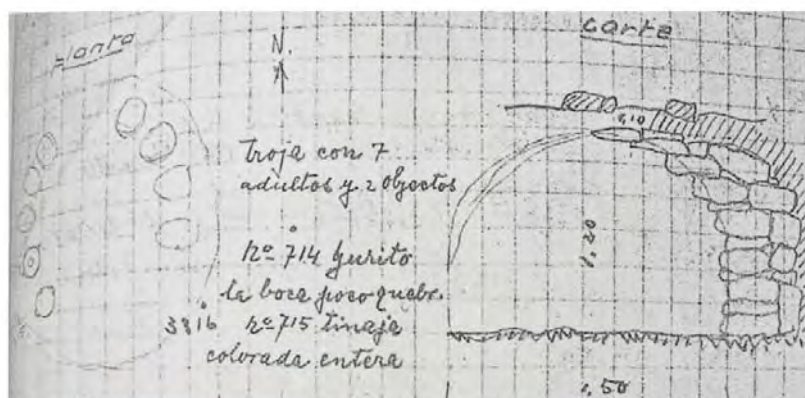 planta
N.
corte
0,10
troja con 7
adultos y 2 objectos
nº 714 yurito
la boca poco quebr.
3816 nº 715 tinaja
colorada entera
1,20
1,50